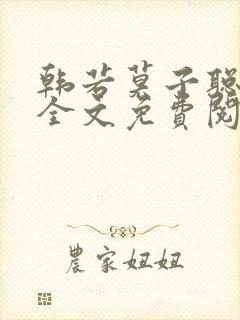 韩若莫子聪
全文免费阅
農家妞妞